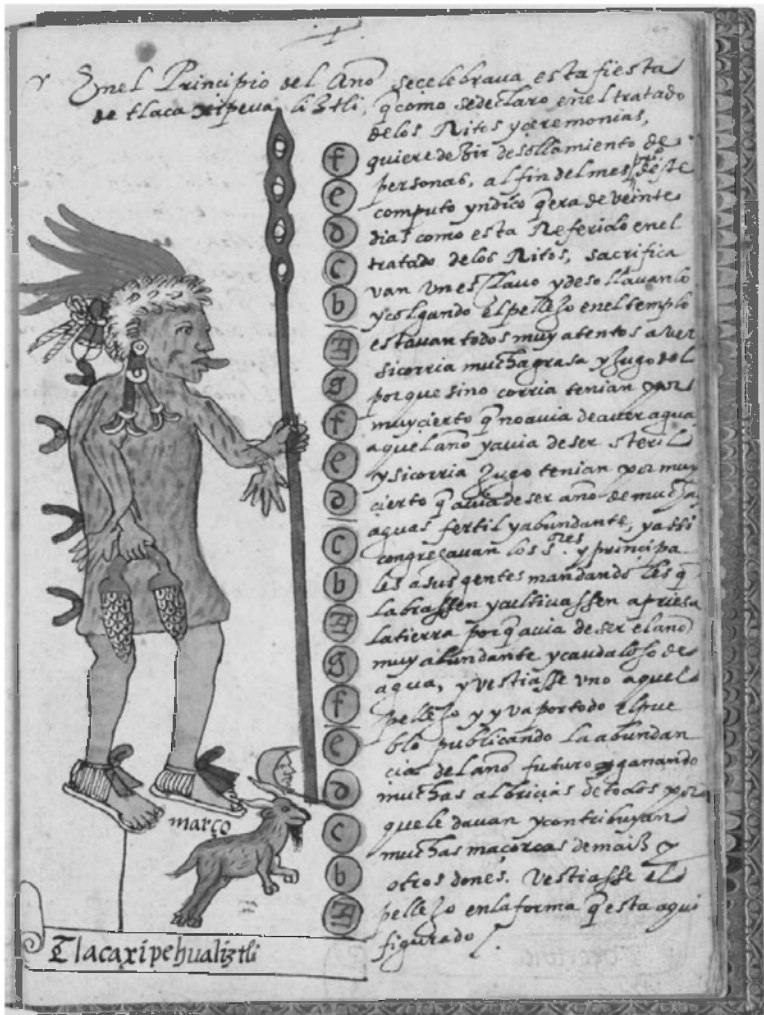 En el Principio del Año se celebrava esta fiesta
de tlaca xipeva liztli, q como se declaro en el tratado
de los Ritos y ceremonias,
quiere dezir desollamiento de
personas, al fin del mes prio deste
computo yndico q era de veinte
dias como esta Referido en el
tratado de los Ritos, sacrifica
van vn esclavo y desollavanlo
y colgando el pellejo en el templo
estavan todos muy atentos a ver
si corria mucha grasa y Jugo del
porque si no corria tenian por
muy cierto q no avia de aver agua
aquel año y avia de ser steril
y si corria Jugo tenian por muy
cierto q avia de ser año de mucha
aguas fertil y abundante, y assi
congregavan los s.res y principa
les a sus gentes mandando les q
labrassen y cultivassen apriesa
la tierra porq avia de ser el año
muy abundante y caudaloso de
agua, y vestiasse vno aquel
pellejo y yva por todo el pue
blo publicando la abundan
cia del año futuro y ganando
muchas albricias de todos por
que le davan y contribuyan
muchas maçorcas de maiz y
otros dones. Vestiasse el
pellejo en la forma q esta aqui
figurado
f
e
d
c
b
A
g
f
e
d
c
b
A
g
f
e
d
c
b
A
março
Tlacaxipehualiztli